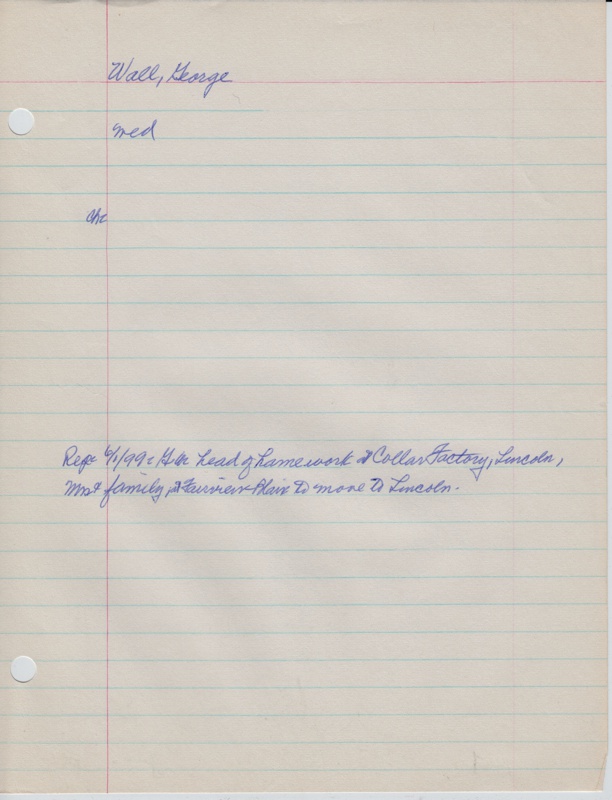 Wall, George
med
ch:
Rep: 6/1/99: G W head of hamework at Collar Factory, Lincoln,
Mr & family, at Fairview Plain to move to Lincoln.